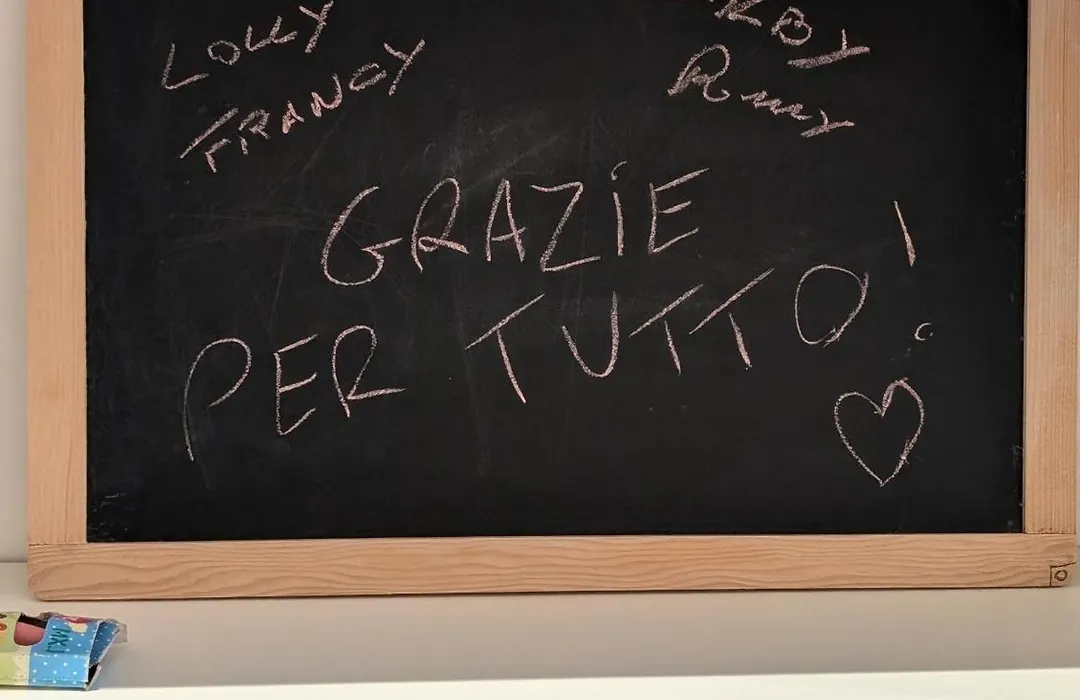 LOLLY
FRANCY
GRAZiE
PER TUTTO!